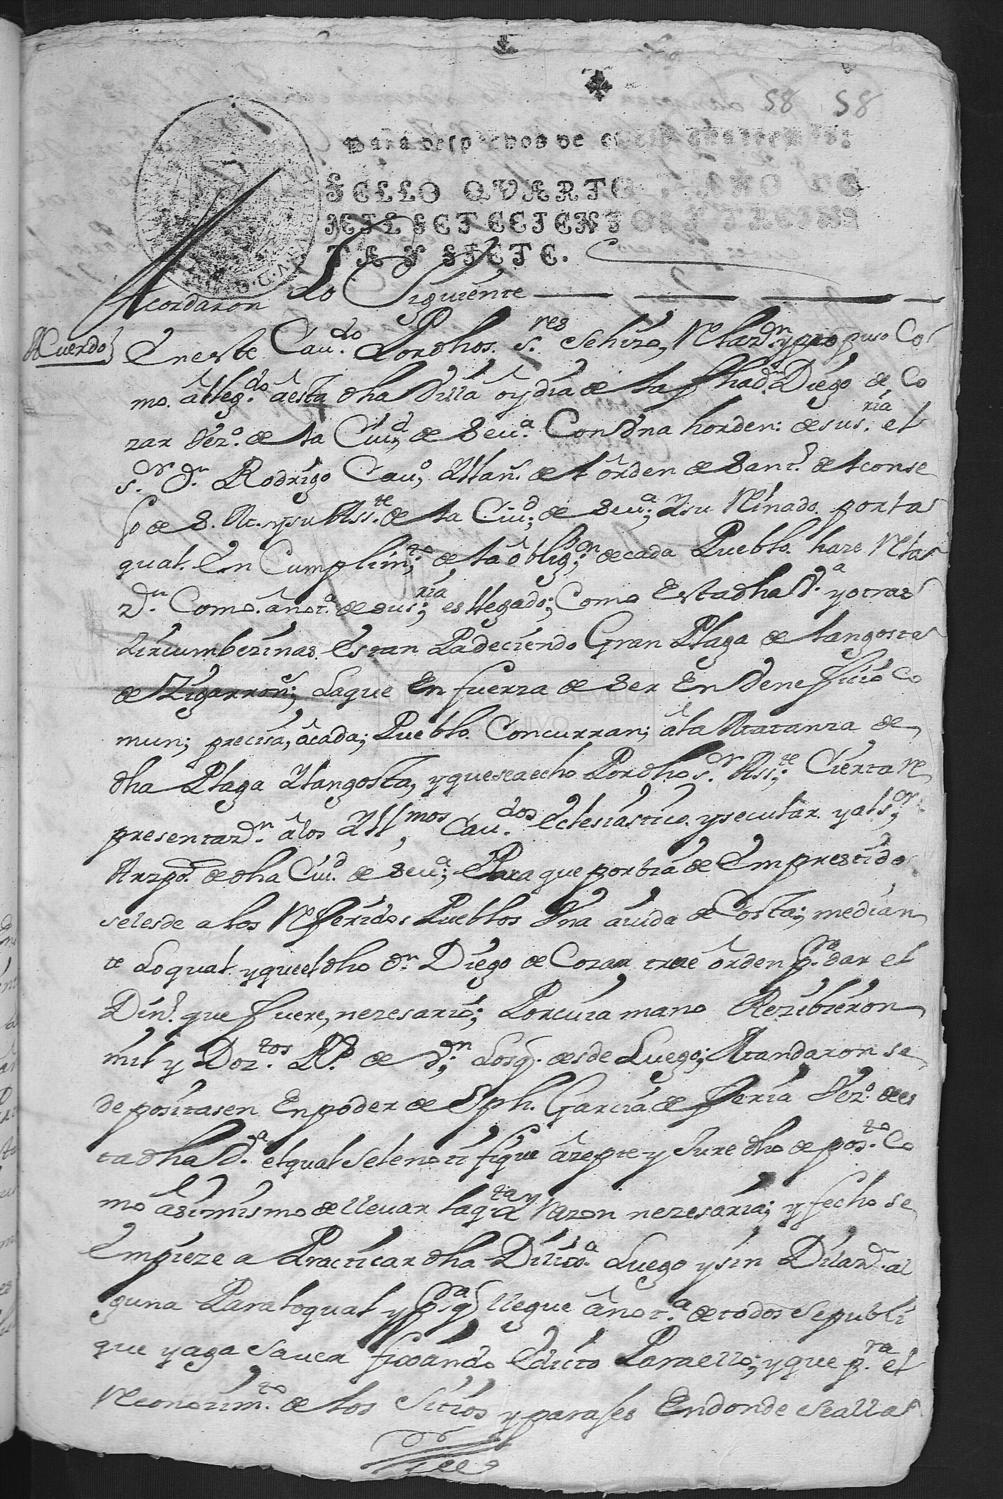 58 58
Para despachos de oficio quatro mrs:
SELLO QVARTO, AÑO DE
MIL SETECIENTOS Y TREIN
TA Y SIETE.
Acordaron lo Siguiente
Acuerdo
En este Cau.do Por dhos. s.res se hizo, Relaz.on y propuso Co
mo. a llegdo a esta dha Villa oy dia de la fha dn Diego de Co
zar Vezº. de la Ciud de Seua. Con Vna horden: de su s.ria el
s.r d.n Rodrigo Cauº, Man. de el orden de Sant.º de el conse
jo de S. M. y su Asste de la Ciud; de Seua; y su Reinado, por la
qual. En Cumplim.to de la oblig.on de cada Pueblo. haze Relas
z.on Como. a not.a de su s.ria; es llegado; Como Esta dha V.a y otras
Zircumbezinas. Estan Padeciendo Gran Plaga de langosta
de Zigarron; La que En fuerza de Ser En Veneficio Co
mun; precisa, a cada; Pueblo. Concurran; a la Matanza de
dha Plaga Y langosta, y que se a echo Por dho s.r Ass.te Cierta Re
presentaz.on a los Ill.mos Cau.dos Eclesiastico. y secular y al s.or
Arzpo. de dha Ciud. de Seua; Para que por bia de Emprestido
se les de a los Referidos Pueblos Vna aiuda de Costa; median
te Lo qual y que el dho d.n Diego de Cozar trae orden p.a dar el
Din.º que fuere, nezesario; Por cuia mano Rezibieron
mil y Doz.tos R.s de v.on Los q. desde Luego; Mandaron se
depositasen En poder de Jph. Garcia de feria Vez.º de es
ta dha V.a el qual se le notifique azepte y Jure dho depos.to Co
mo asimismo de llevar la q.ta y Razon nezesaria; y fecho se
Empieze a Practicar dha Dilix.a Luego y sin Dilaz.on al
guna Para lo qual y p.a q llegue a not.a de todos Se publi
que y aga Saver fixando Edicto Para ello; y que p.ra el
Reconozim.to de los Sitios y parajes En donde Se alla